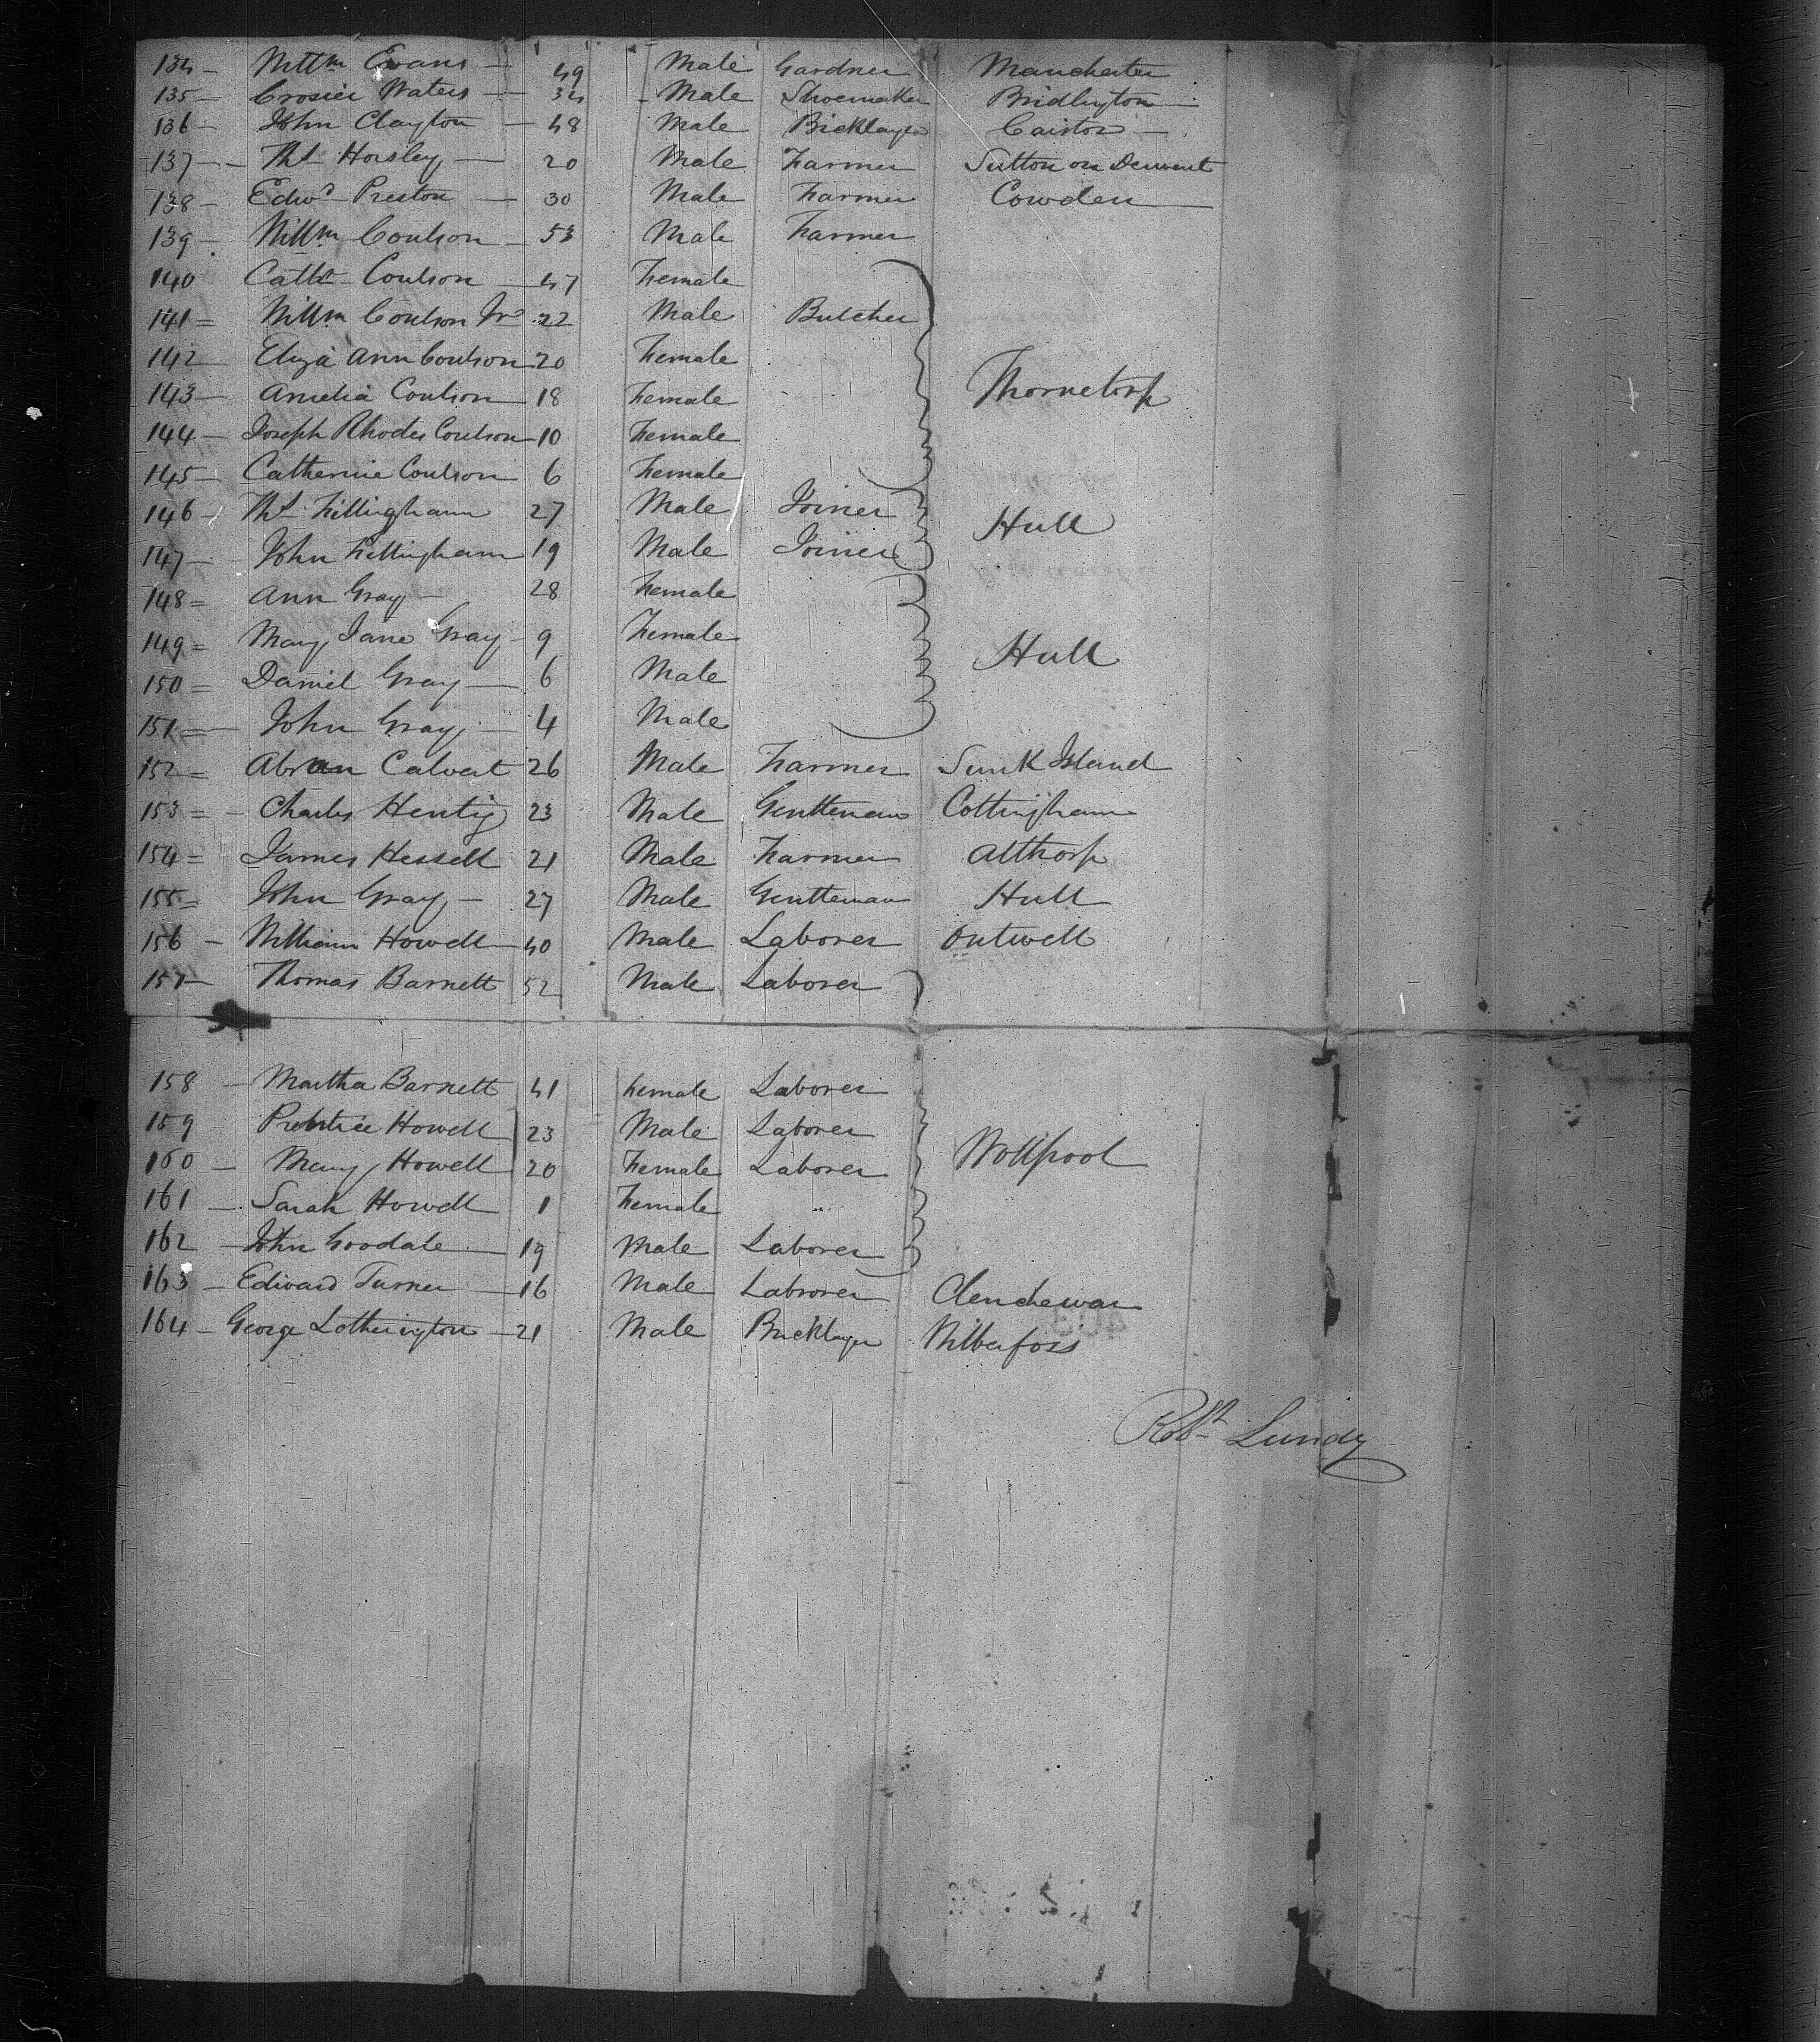 134 - Willm Evans - 49 Male Gardner Manchester
135 - Crosier Waters - 34 - Male Shoemaker Bridlington -
136 - John Clayton - 48 Male Bricklayer Caistor -
137 - Thos Horsley - 20 Male Farmer Sutton on Derwent
138 - Edwd Preston - 30 Male Farmer Cowden
139 - Willm Coulson - 53 Male Farmer
140 Cath Coulson - 47 Female
141 = Willm Coulson Jnr 22 Male Butcher
142 - Eliza Ann Coulson 20 Female
Thornetorp
143 - Amelia Coulson - 18 Female
144 - Joseph Rhodes Coulson - 10 Female
145 - Catherine Coulson 6 Female
146 - Thos Fillingham 27 Male Joiner
Hull
147 - John Fillingham 19 Male Joiner
148 = Ann Gray - 28 Female
149 = Mary Jane Gray - 9 Female
Hull
150 = Daniel Gray - 6 Male
151 = John Gray - 4 Male
152 = Abram Calvert 26 Male Farmer Sunk Island
153 = - Charles Hentig 23 Male Gentleman Cottingham
154 = James Hessell 21 Male Farmer Althorp
155 = John Gray - 27 Male Gentleman Hull
156 - William Howell - 40 Male Laborer Outwell
157 - Thomas Barnett 52 Male Laborer
158 - Martha Barnett 41 Female Laborer
159 Prentice Howell 23 Male Laborer
Wollpool
160 - Mary Howell 20 Female Laborer
161 - Sarah Howell 1 Female
162 - John Goodale - 19 Male Laborer
163 - Edward Turner - 16 Male Laborer Clenchewar
164 - George Lotherington - 21 Male Bricklayer Wilberfoss
Robt Lundy